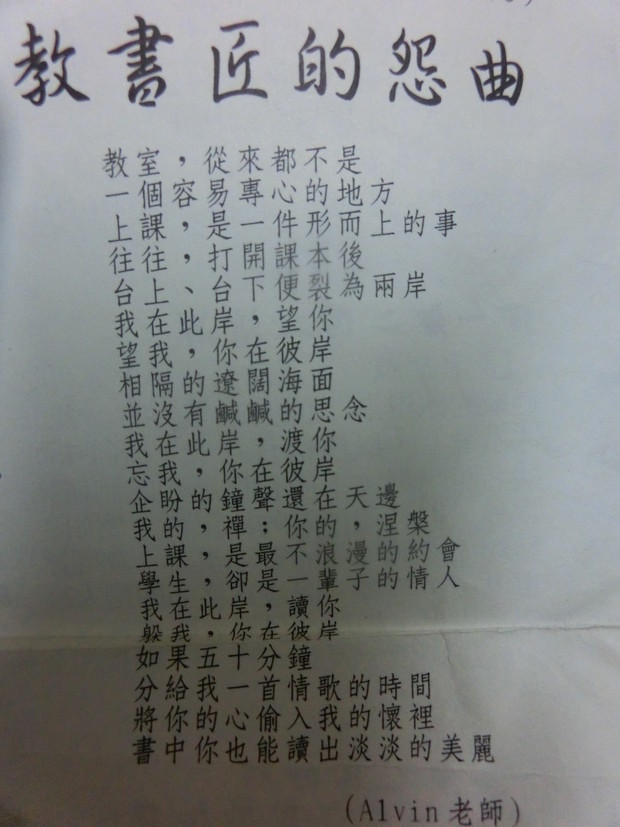 教書匠的怨曲
教室，從來都不是
一個，容易專心的地方
上課，是一件形而上的事
往往，打開課本後
台上、台下便裂為兩岸
我在此岸，望你
望我，你在彼岸
相隔的遼闊海面
並沒有鹹鹹的思念
我在此岸，渡你
忘我，你在彼岸
企盼的鐘聲還在天邊
我的，禪；你的，涅槃
上課，是最不浪漫的約會
學生，卻是一輩子的情人
我在此岸，讀你
躲我，你在彼岸
如果五十分鐘
分給我一首情歌的時間
將你的心偷入我的懷裡
書中你也能讀出淡淡的美麗
(Alvin老師)